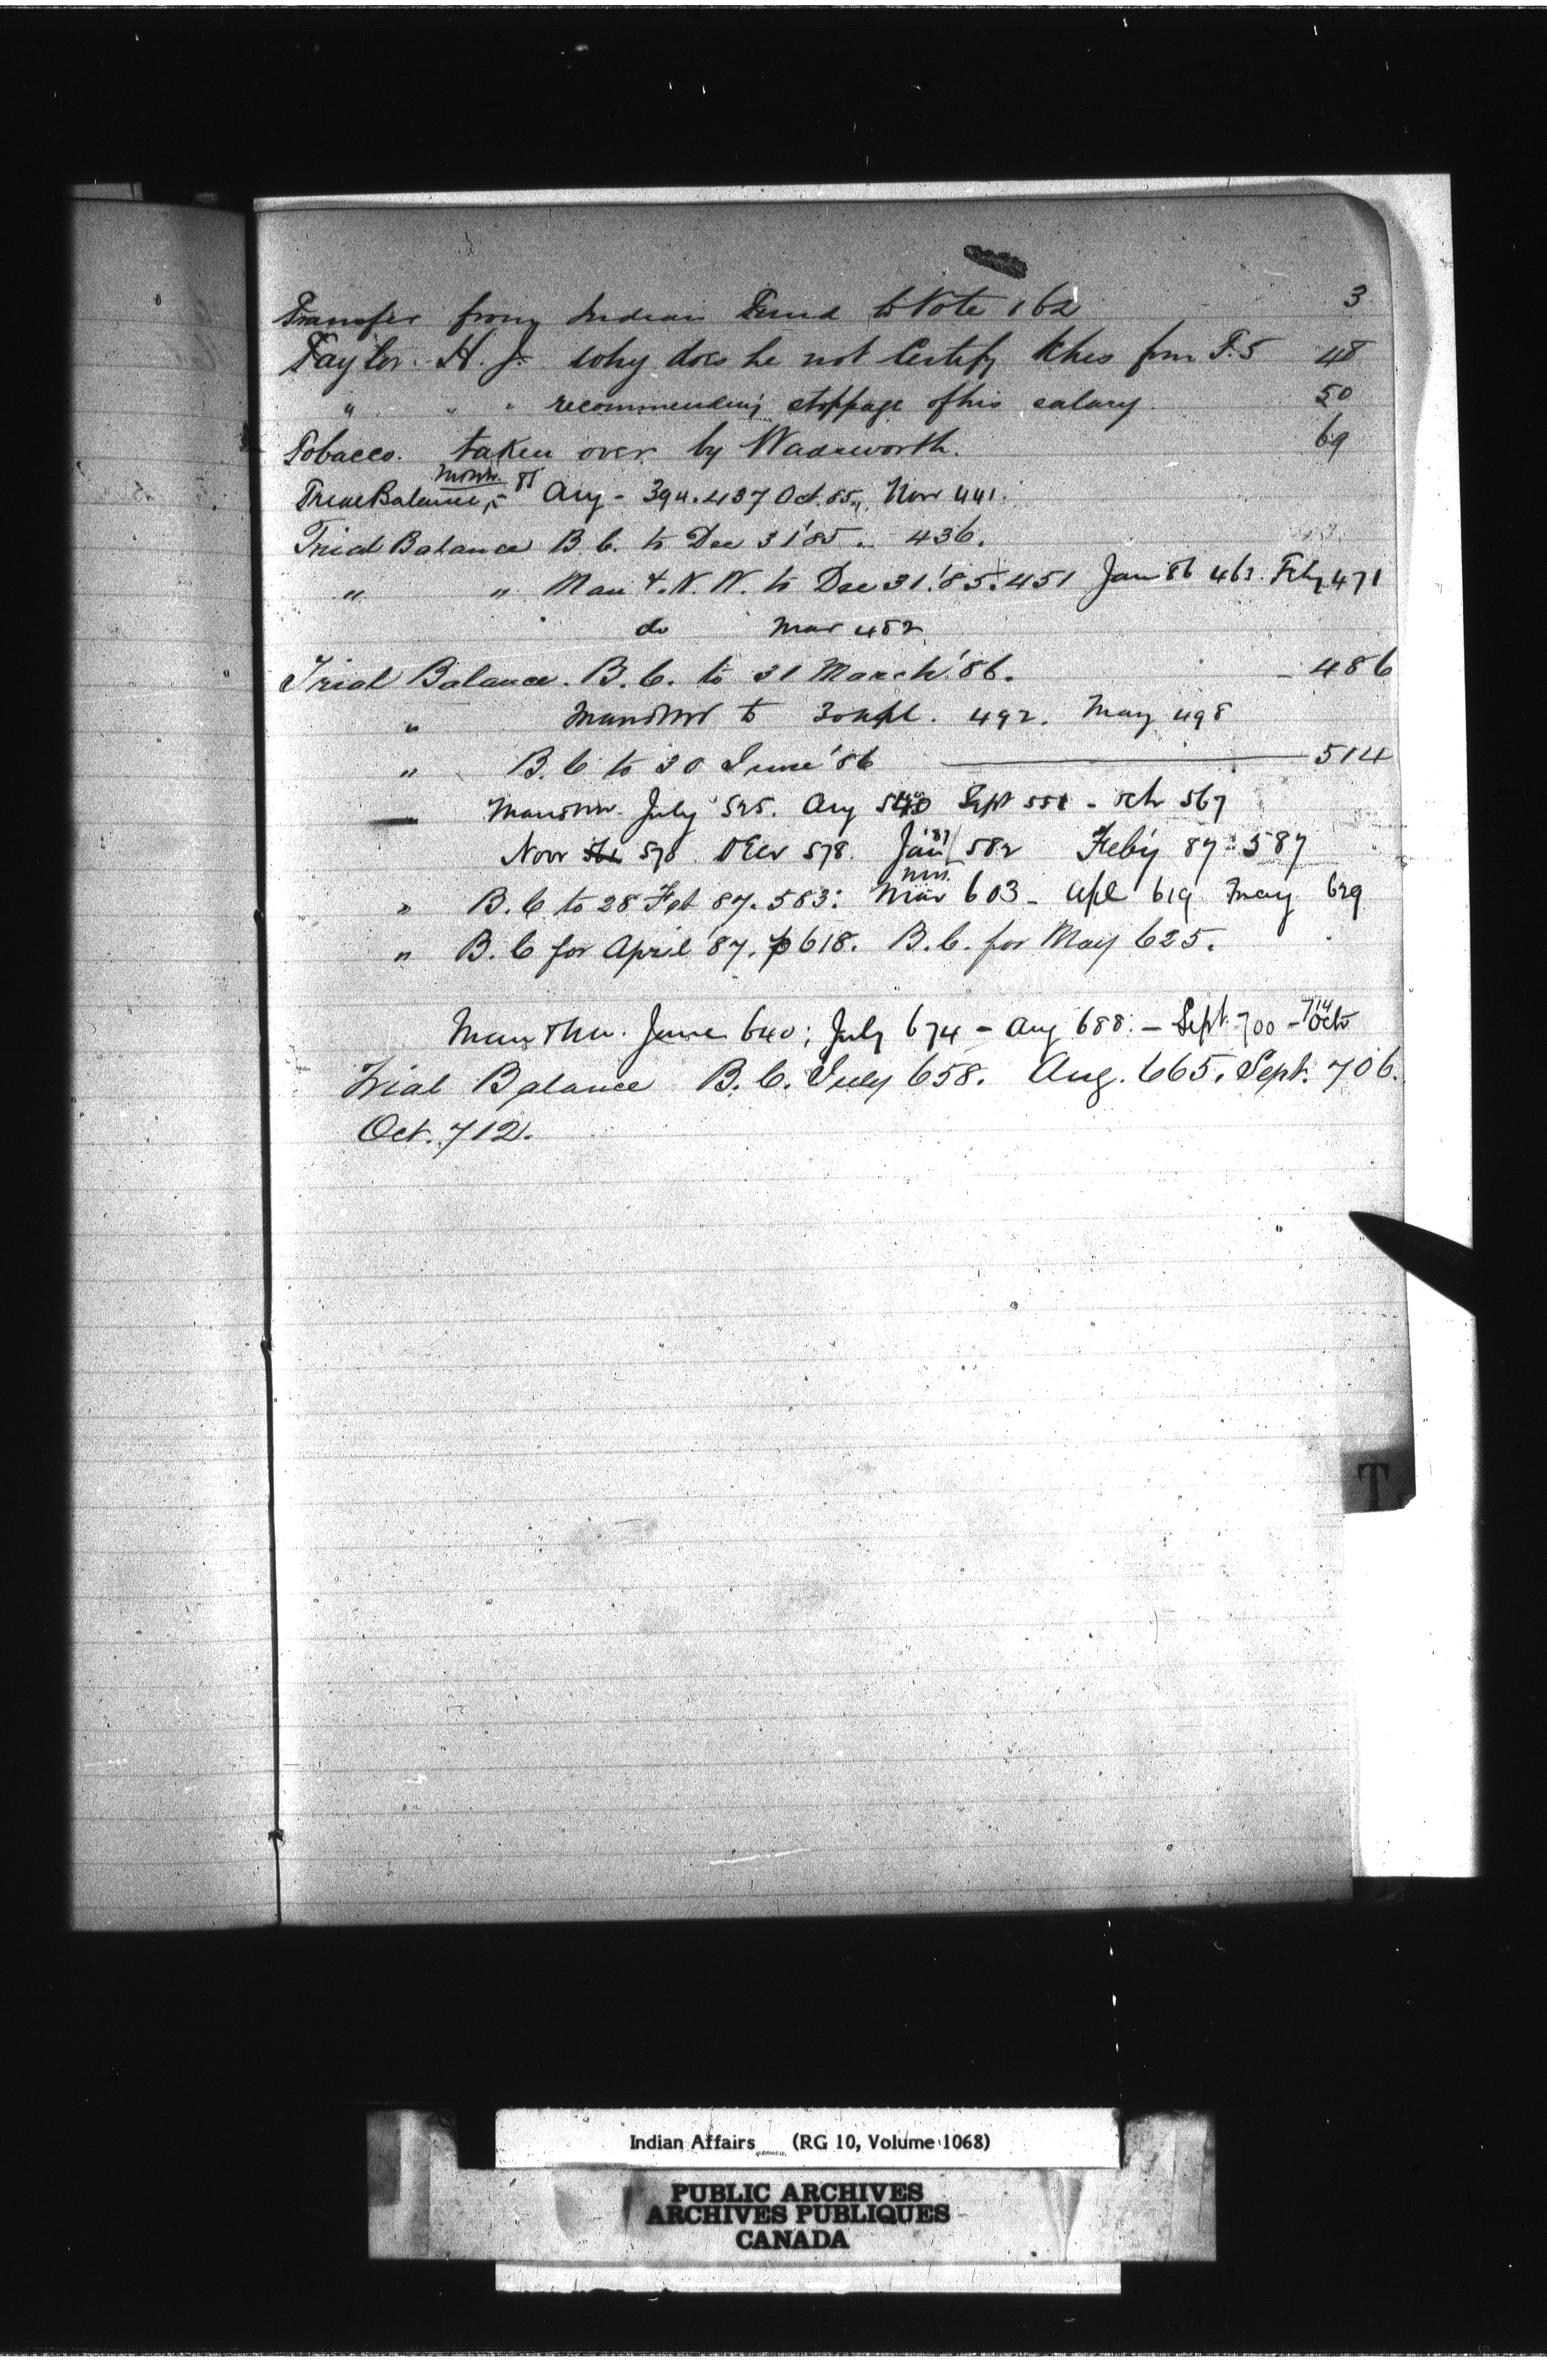 Transfer from Indian Fund to Vote 162 3
Taylor. H. J. why does he not Certify Ches from T.5 48
" " " recommending stoppage of his salary 50
Tobacco. taken over by Wadsworth. 69
Trial Balance, 85 Aug - 394. 437 Oct. 85., Nov 441.
Trial Balance B.C. to Dec 31 '85. 436.
" " Man & N.W. to Dec 31. '85. 451 Jan 86 463. Feby 471
do Mar 482
Trial Balance. B.C. to 31 March '86. - 486
" Man & NW to 30 Apl. 492. May 498
" B.C. to 30 June '86 514
Man & NW. July 525. Aug 540 Sept 551 - Oct 567
Nov 570. Decr 578. Jan '87 582 Feby 87 - 587
" B.C. to 28 Feb 87. 583: Mar 603 - Apl 619 May 629
" B.C for April '87. p 618. B.C. for May 625.
Man & NW. June 640; July 674 - Aug 688. - Sept. 700 - Oct 714
Trial Balance B.C. July 658. Aug. 665. Sept. 706.
Oct. 712.
T
Indian Affairs (RG 10, Volume 1068)
PUBLIC ARCHIVES
ARCHIVES PUBLIQUES
CANADA